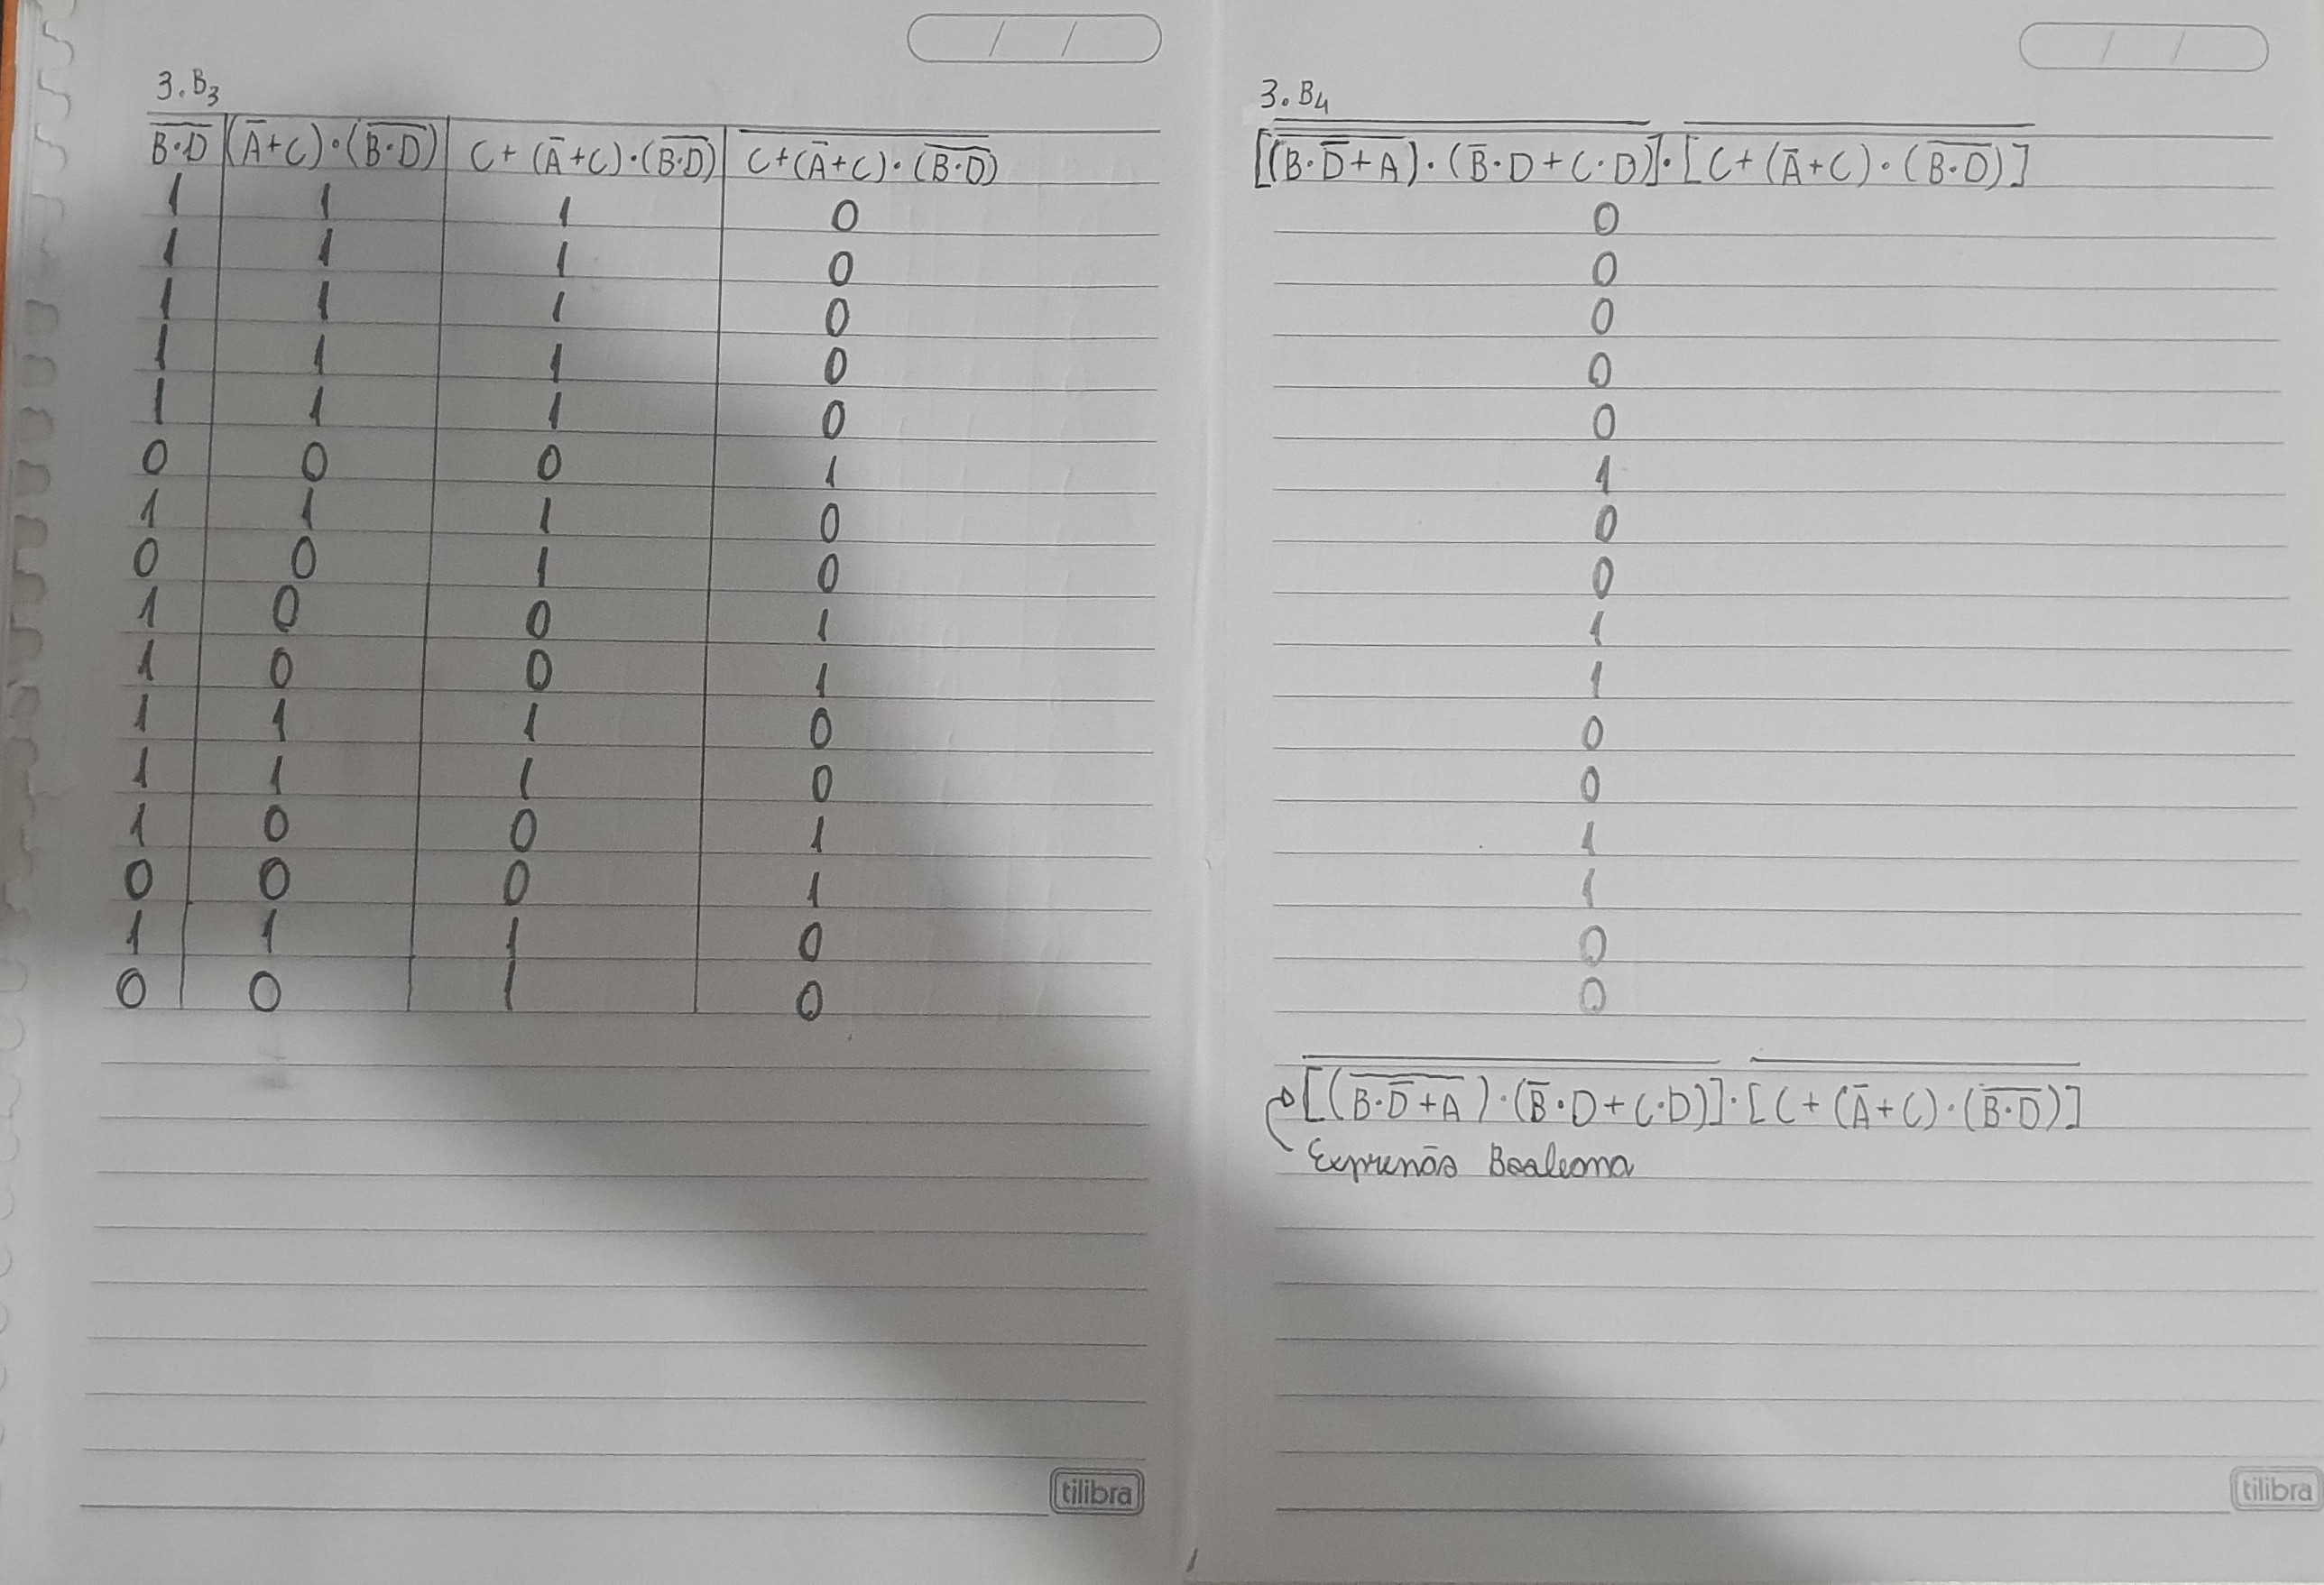 3.B₃
B̅·̅D̅ | (A̅+C)·(B̅·̅D̅) | C+(A̅+C)·(B̅·̅D̅) | C̅+̅(̅A̅+̅C̅)̅·̅(̅B̅·̅D̅)̅
1 1 1 0
1 1 1 0
1 1 1 0
1 1 1 0
1 1 1 0
0 0 0 1
1 1 1 0
0 0 1 0
1 0 0 1
1 0 0 1
1 1 1 0
1 1 1 0
1 0 0 1
0 0 0 1
1 1 1 0
0 0 1 0
tilibra
3.B₄
[(B·D̅+A)·(B̅·D+C·D)]·[C+(A̅+C)·(B̅·̅D̅)]
0
0
0
0
0
1
0
0
1
1
0
0
1
1
0
0
[(B·D̅+A)·(B̅·D+C·D)]·[C+(A̅+C)·(B̅·̅D̅)]
Expressão Booleana
tilibra